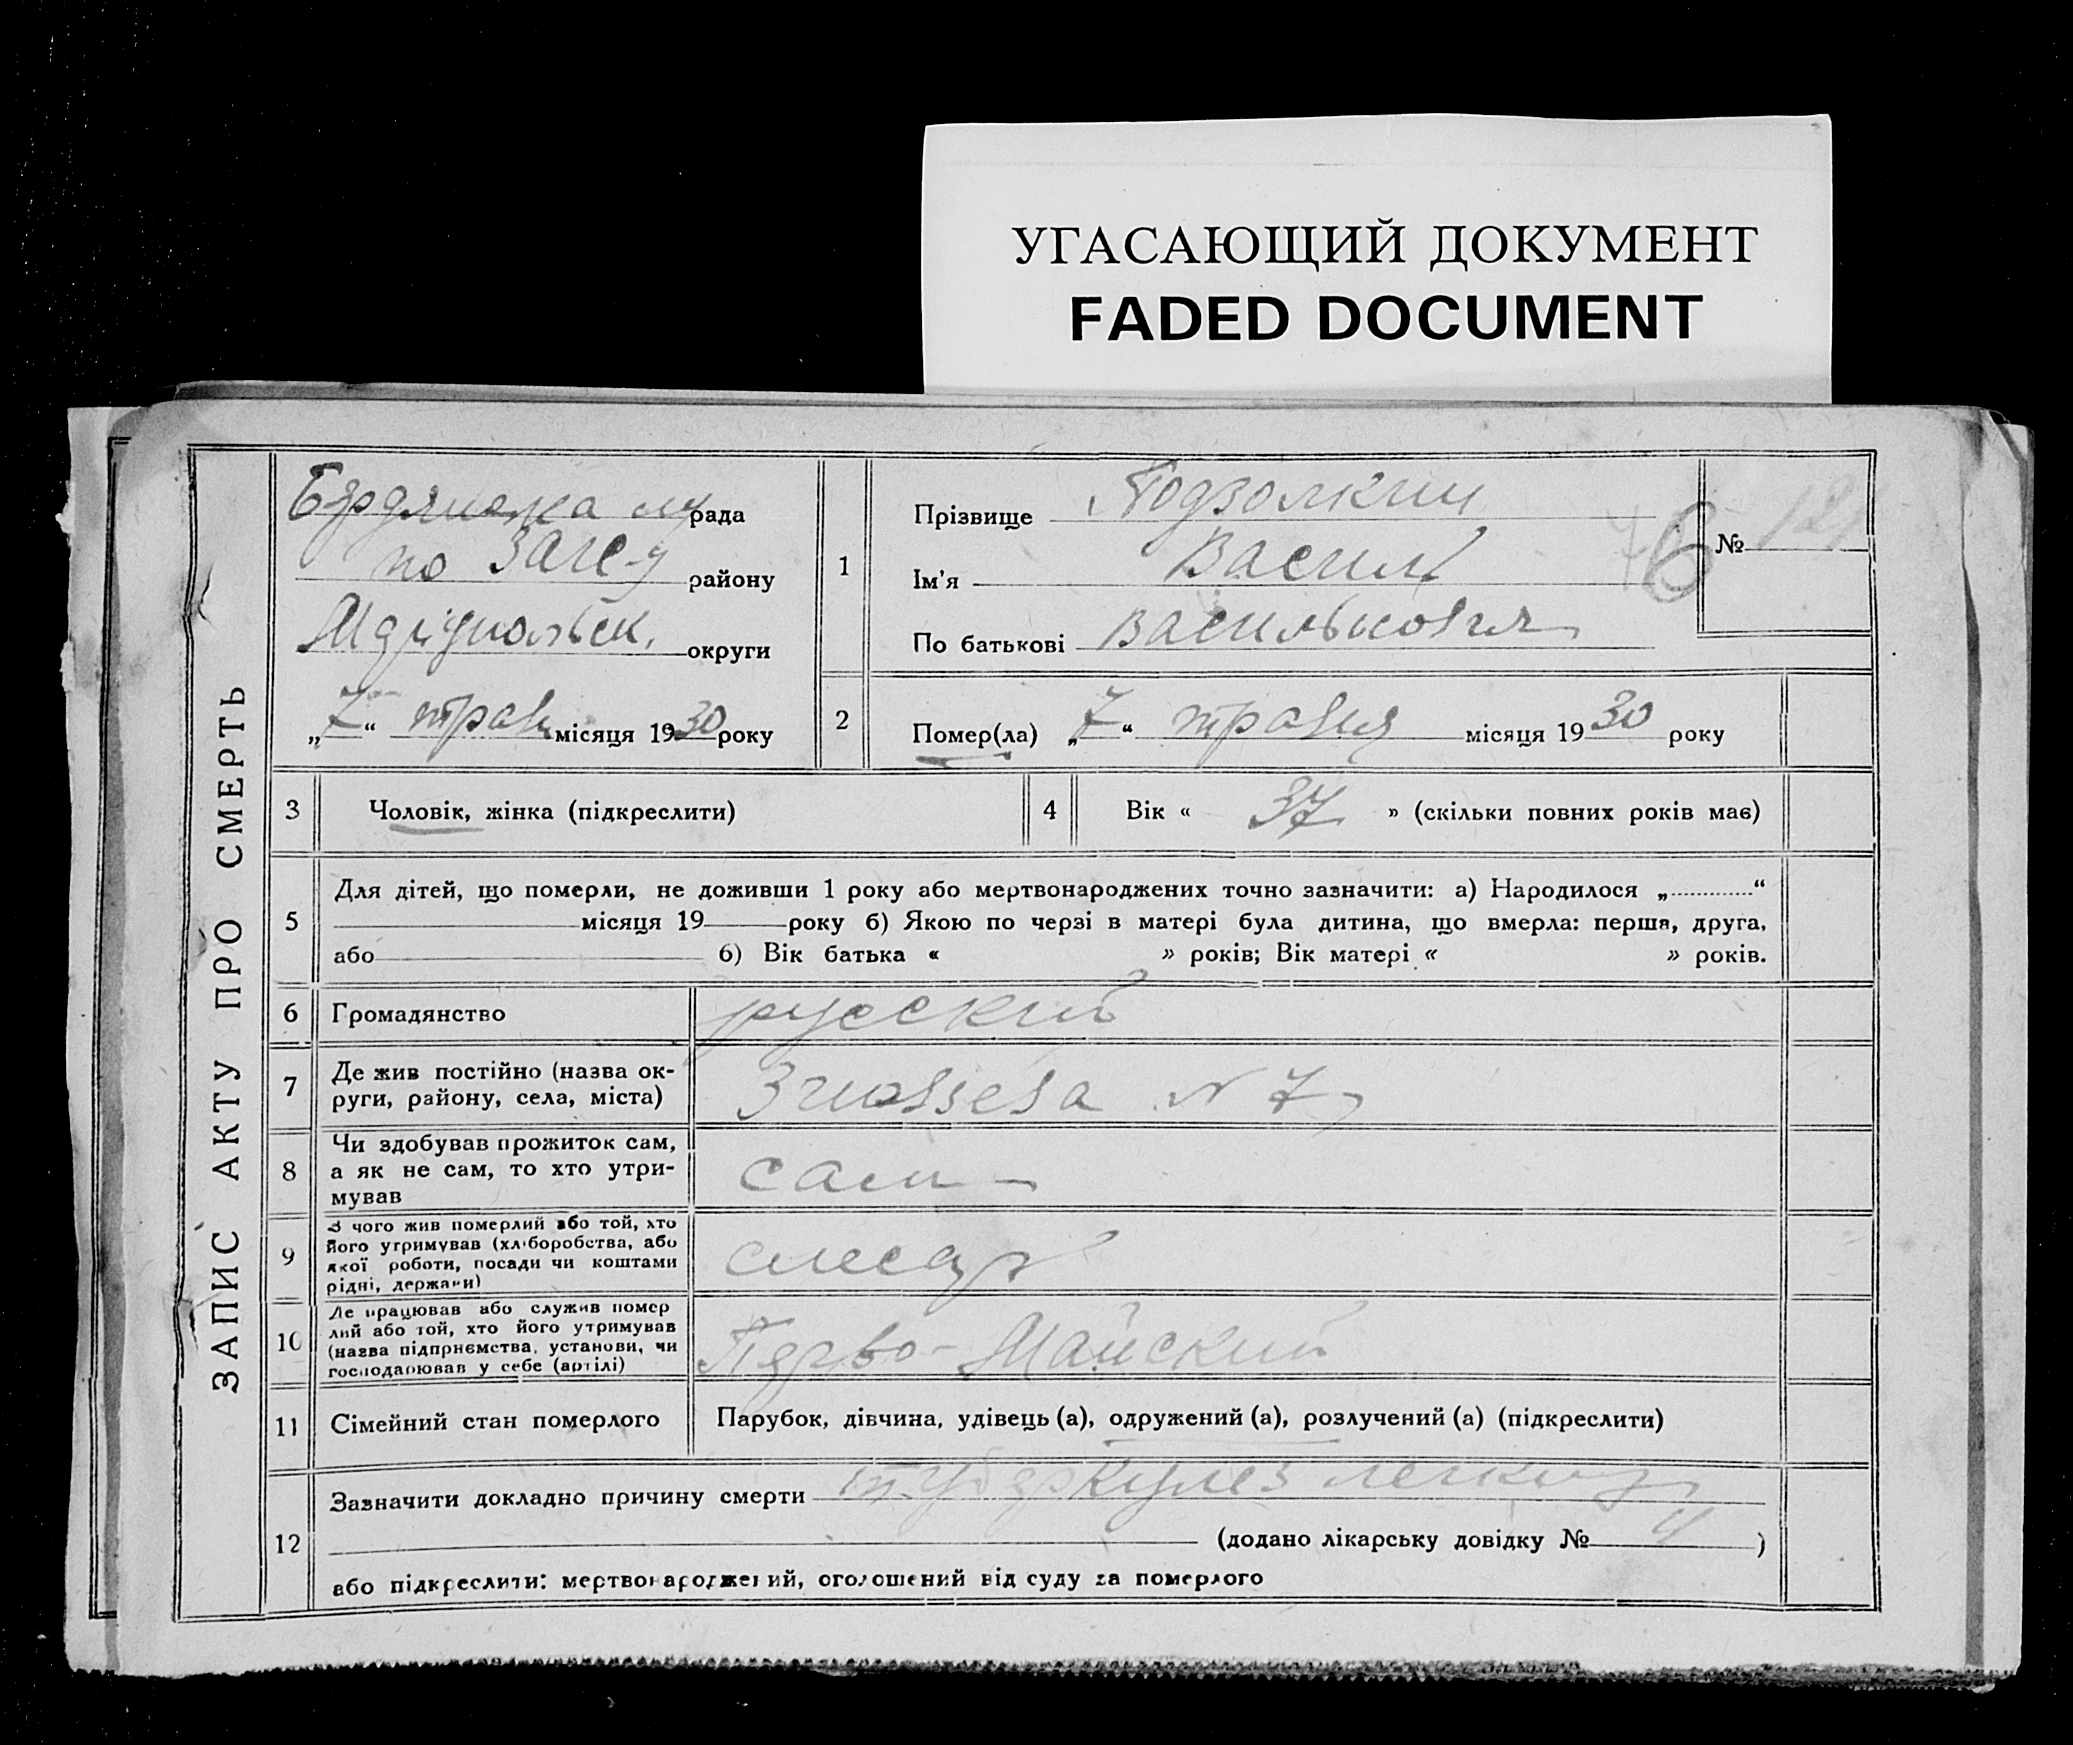 УГАСАЮЩИЙ ДОКУМЕНТ
FADED DOCUMENT
ЗАПИС АКТУ ПРО СМЕРТЬ
Бердянска рада
по району
Маріупольск. округи
„7“ травн місяця 1930 року
1
Прізвище Подзолкин
Ім'я Васил
По батькові Васильович
76
№ 121
2
Помер(ла) „7“ травня місяця 1930 року
3 Чоловік, жінка (підкреслити)
4 Вік « 37 » (скільки повних років має)
5 Для дітей, що померли, не доживши 1 року або мертвонароджених точно зазначити: а) Народилося „ “
місяця 19 року б) Якою по черзі в матері була дитина, що вмерла: перша, друга,
або б) Вік батька « » років; Вік матері « » років.
6 Громадянство русский
7 Де жив постійно (назва ок-
руги, району, села, міста) N 7
8 Чи здобував прожиток сам,
а як не сам, то хто утри-
мував сам
9 З чого жив померлий або той, хто
його утримував (хліборобства, або
якої роботи, посади чи коштами
рідні, держави) слесар
10 Де працював або служив помер
лий або той, хто його утримував
(назва підприємства, установи, чи
господарював у себе (артілі) Перво-Майский
11 Сімейний стан померлого Парубок, дівчина, удівець (а), одружений (а), розлучений (а) (підкреслити)
12 Зазначити докладно причину смерти туберкулез легких
(додано лікарську довідку № )
або підкреслити: мертвонароджений, оголошений від суду за померлого